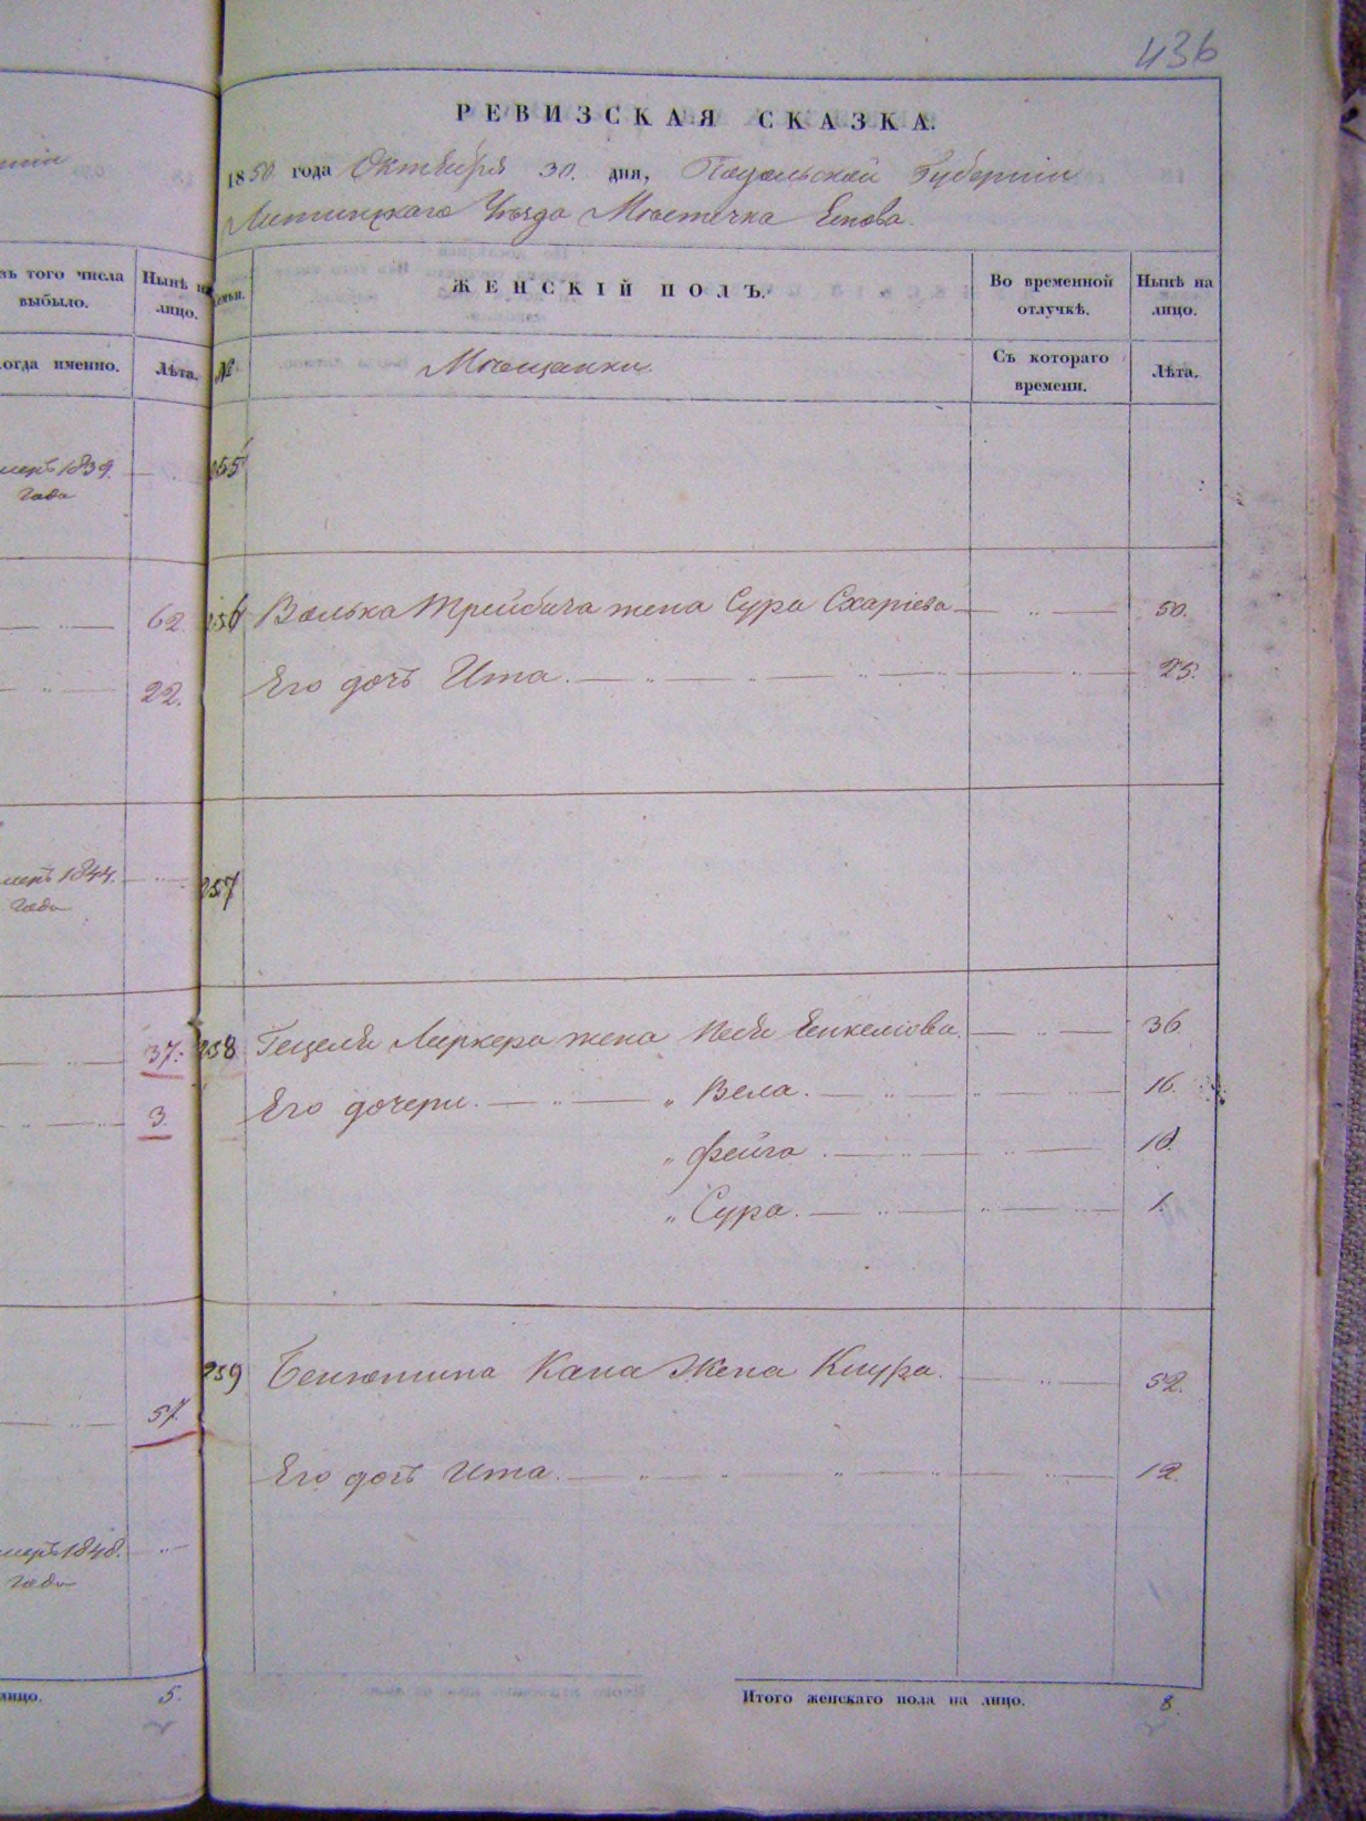 436
РЕВИЗСКАЯ СКАЗКА.
1850 года Октября 30. дня, Подольской Губерніи
Литинскаго Уѣзда Мѣстечка
зъ того числа выбыло.
Нынѣ на лицо.
семьи.
ЖЕНСКІЙ ПОЛЪ.
Во временной отлучкѣ.
Нынѣ на лицо.
когда именно.
Лѣта.
№
Мѣщанки.
Съ котораго времени.
Лѣта.
меръ 1839. года
255
62. 256 Волька Трейбича жена Сура Схаріева 50.
22. Его дочь Ита. 25.
меръ 1844. года
257
37. 258 Гецеля Лиркера жена Песя Енкеліова. 36
3. Его дочери. „ Вела. 16.
„ Фейга 10.
„ Сура. 1.
259 Бенюмина Кана Жена Киура. 52.
57.
Его дочь Ита. 12.
меръ 1848. года
лицо. 5.
Итого женскаго пола на лицо. 8.